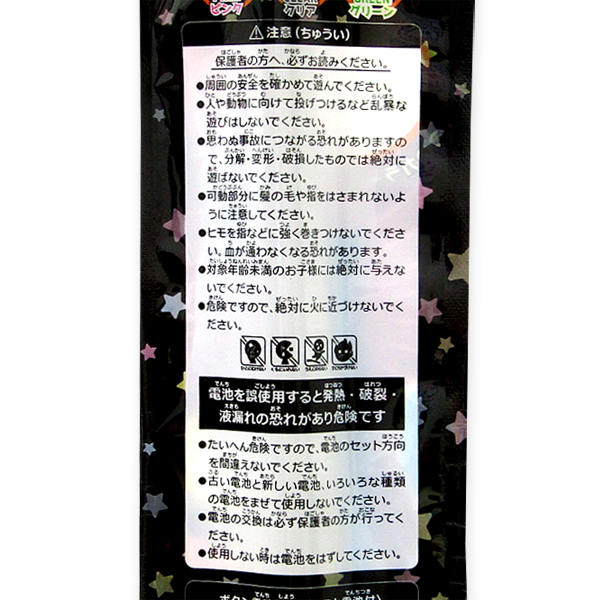 ピンク
CLEAR
クリア
GREEN
グリーン
⚠注意(ちゅうい)
保護者の方へ、必ずお読みください。
●周囲の安全を確かめて遊んでください。
●人や動物に向けて投げつけるなど乱暴な
遊びはしないでください。
●思わぬ事故につながる恐れがありますの
で、分解・変形・破損したものでは絶対に
遊ばないでください。
●可動部分に髪の毛や指をはさまれないよ
うに注意してください。
●ヒモを指などに強く巻きつけないでくださ
い。血が通わなくなる恐れがあります。
●対象年齢未満のお子様には絶対に与えな
いでください。
●危険ですので、絶対に火に近づけないでく
ださい。
電池を誤使用すると発熱・破裂・
液漏れの恐れがあり危険です
●たいへん危険ですので、電池のセット方向
を間違えないでください。
●古い電池と新しい電池、いろいろな種類
の電池をまぜて使用しないでください。
●電池の交換は必ず保護者の方が行ってく
ださい。
●使用しない時は電池をはずしてください。